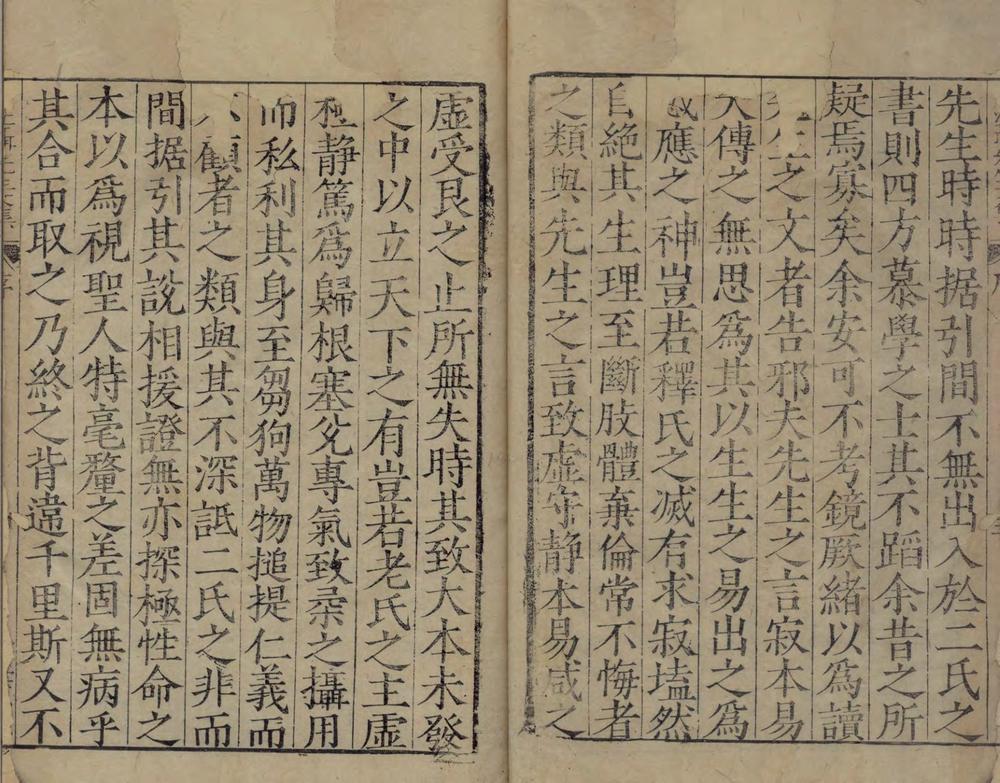 先生時時据引間不無出入於二氏之
書則四方慕學之士其不蹈余昔之所
疑焉寡矣余安可不考鏡厥緒以爲讀
先生之文者告邪夫先生之言寂本易
大傳之無思爲其以生生之易出之爲
感應之神豈若釋氏之滅有求寂塊然
自絕其生理至斷肢體棄倫常不悔者
之類與先生之言致虛守靜本易咸之
虛受艮之止所無失時其致大本未發
之中以立天下之有豈若老氏之主虛
極靜篤爲歸根塞兌專氣致柔之攝用
而私利其身至芻狗萬物搥提仁義而
不顧者之類與其不深詆二氏之非而
間据引其說相援證無亦探極性命之
本以爲視聖人特毫釐之差固無病乎
其合而取之乃終之背違千里斯又不